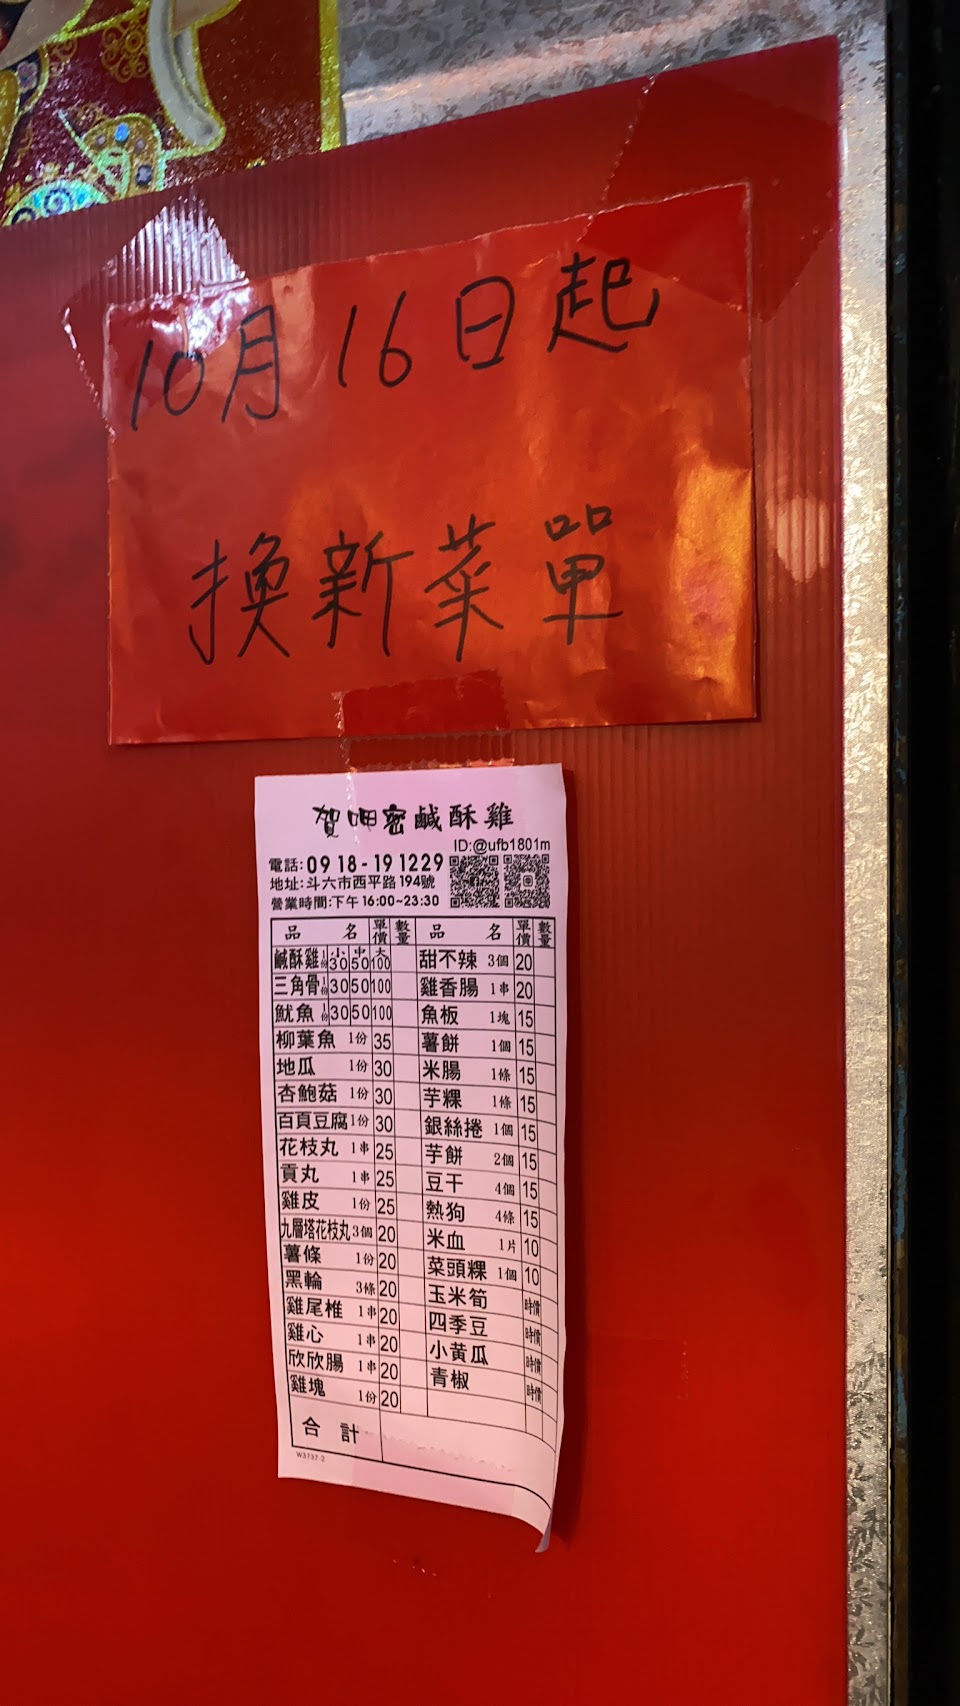 10月16日起
換新菜單
賀呷密鹹酥雞
ID:@ufb1801m
電話:0918-191229
地址:斗六市西平路194號
營業時間:下午16:00~23:30
品名 單價 數量 品名 單價 數量
鹹酥雞 1份 小30 中50 大100 甜不辣 3個 20
三角骨 1份 30 50 100 雞香腸 1串 20
魷魚 1份 30 50 100 魚板 1塊 15
柳葉魚 1份 35 薯餅 1個 15
地瓜 1份 30 米腸 1條 15
杏鮑菇 1份 30 芋粿 1條 15
百頁豆腐 1份 30 銀絲捲 1個 15
花枝丸 1串 25 芋餅 2個 15
貢丸 1串 25 豆干 4個 15
雞皮 1份 25 熱狗 4條 15
九層塔花枝丸 3個 20 米血 1片 10
薯條 1份 20 菜頭粿 1個 10
黑輪 3條 20 玉米筍 時價
雞尾椎 1串 20 四季豆 時價
雞心 1串 20 小黃瓜 時價
欣欣腸 1串 20 青椒 時價
雞塊 1份 20
合計
W3737-2